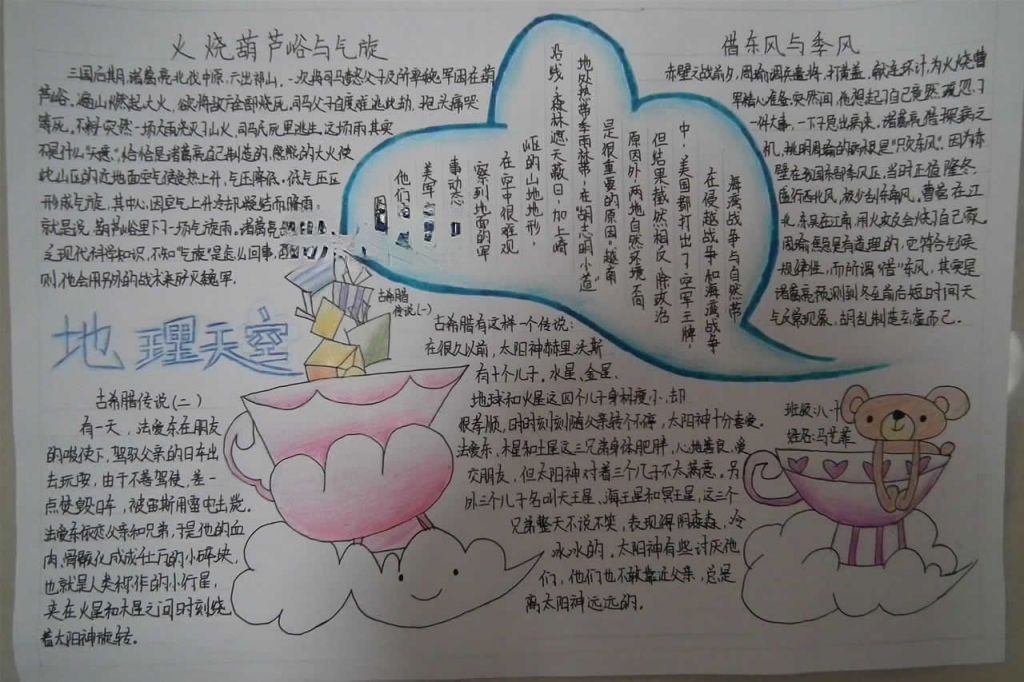 火烧葫芦峪与气旋
三国后期,诸葛亮北伐中原,六出祁山,一次将司马懿父子及所率魏军困在葫
芦峪,遍山燃起大火,欲将敌方全部烧死,司马父子自度难逃此劫,抱头痛哭
等死,不料突然一场大雨浇灭了山火,司马氏死里逃生。这场雨其实
不是什么"天意",恰恰是诸葛亮自己制造的,熊熊的大火使
此山区的近地面空气受热上升,气压降低,低气压区
形成气旋,其中心因空气上升冷却凝结而降雨,
就是说,葫芦峪里下了一场气旋雨,诸葛亮
之现代科学知识,不知"气旋"是怎么回事,
则,他会用另外的战术来歼灭魏军
借东风与季风
赤壁之战前夕,周瑜调兵遣将,打黄盖,献连环计,为火烧曹
军精心准备,突然间,他想起了自己竟然疏忽了
一件大事,一下子急出病来,诸葛亮借探病之
机,挑明周瑜的病根是"只欠东风"。因为赤
壁在我国东部季风区,当时正值隆冬,
盛行西北风,极少刮东南风,曹营在江
北,东吴在江南,用火攻反会烧了自己寨,
周瑜焦急是有道理的,它符合气候
规律性,而所谓"借"东风,其实是
诸葛亮预测到冬至前后短时间天
气反常现象,胡乱制造玄虚而已。
海湾战争与自然带
在侵越战争和海湾战争
中,美国都打出了"空军王牌,
但结果截然相反,除政治
原因外,两地自然环境不同
是很重要的原因。越南
地处热带季雨林带,在"胡志明小道"
沿线,森林遮天蔽日,加上崎
岖的山地地形,
在空中很难观
察到地面的军
事动态
美军
他们
地理天空
古希腊
传说(一)
古希腊有这样一个传说:
在很久以前,太阳神赫里沃斯
有十个儿子。水星、金星、
地球和火星这四个儿子身材瘦小,却
很孝顺,日时刻刻随父亲转个不停,太阳神十分喜爱。
法爱东、木星和土星这三兄弟身体肥胖,心地善良,爱
交朋友,但太阳神对着三个儿子不太满意。另
外三个儿子名叫天王星、海王星和冥王星,这三个
兄弟整天不说不笑,表现得阴森森,冷
冰冰的,太阳神有些讨厌他
们,他们也不敢靠近父亲,总是
离太阳神远远的。
古希腊传说(二)
有一天,法爱东在朋友
的唆使下,驾驭父亲的日车出
去玩耍,由于不善驾使,差一
点使毁日车,被宙斯用雷电击毙。
法爱东依恋父亲和兄弟,于是他的血
肉、骨骸化成成千上万的小碎块,
也就是人类称作的小行星,
夹在火星和木星之间日时刻绕
着太阳神旋转。
班级:八十
姓名:马艺菲